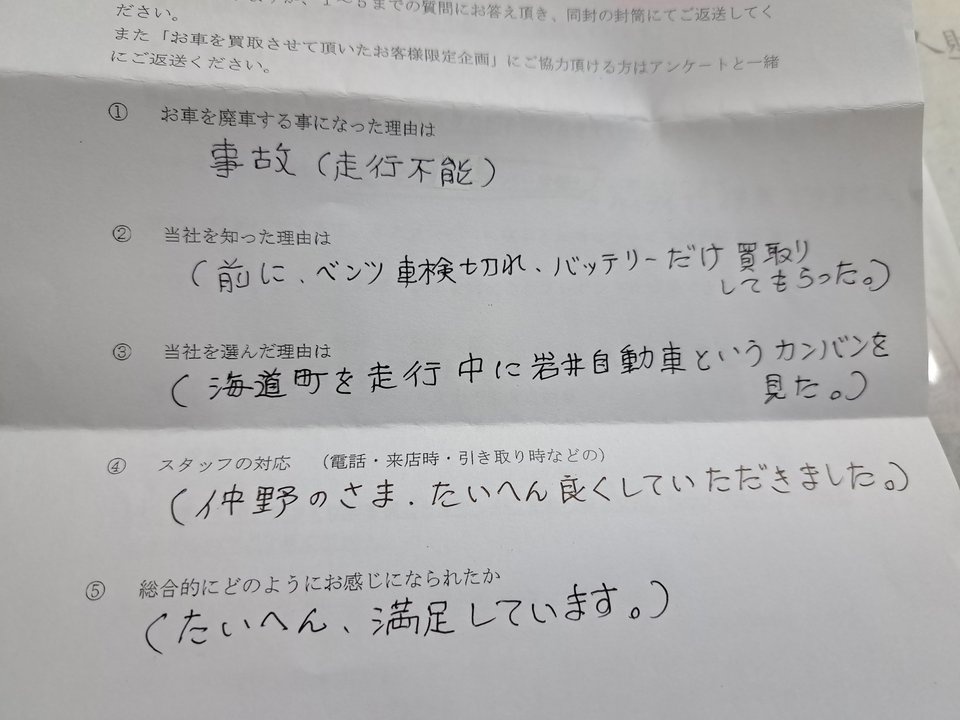 、1～5までの質問にお答え頂き、同封の封筒にてご返送してく
ださい。
また「お車を買取させて頂いたお客様限定企画」にご協力頂ける方はアンケートと一緒
にご返送ください。
① お車を廃車する事になった理由は
事故(走行不能)
② 当社を知った理由は
(前に、ベンツ車検切れ、バッテリーだけ買取り
してもらった。)
③ 当社を選んだ理由は
(海道町を走行中に岩井自動車というカンバンを
見た。)
④ スタッフの対応 (電話・来店時・引き取り時などの)
(仲野のさま.たいへん良くしていただきました。)
⑤ 総合的にどのようにお感じになられたか
(たいへん、満足しています。)